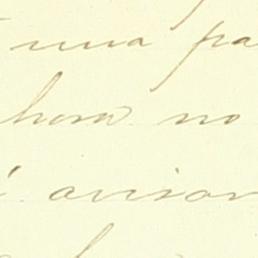 una pa
hora no
avisar